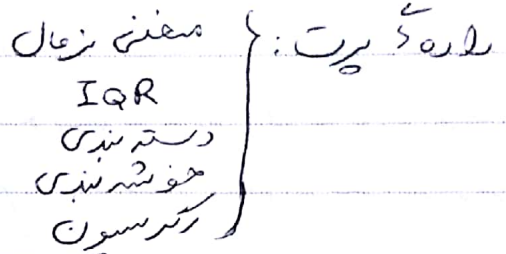 داده‌ی پرت: { منحنی نرمال
IQR
دسته بندی
خوشه بندی
رگرسیون